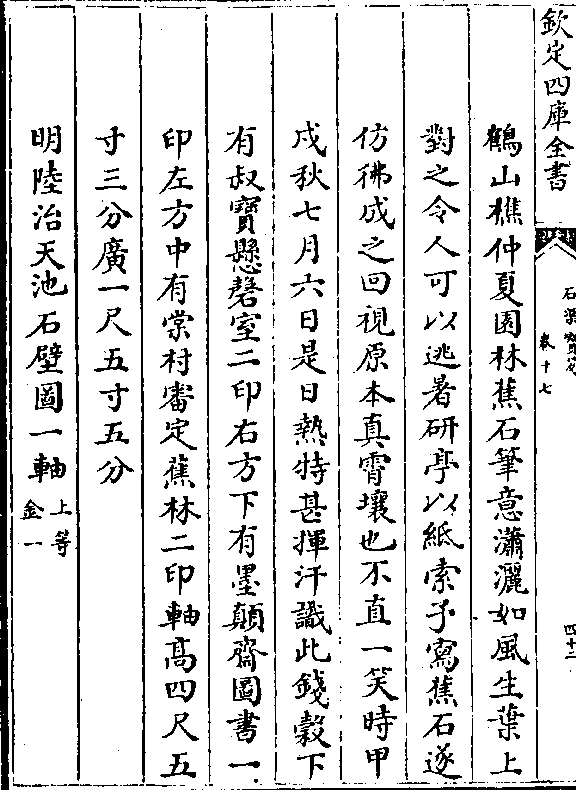 欽定四庫全書
石渠寶笈
卷十七
四十二
鶴山樵仲夏園林蕉石筆意瀟灑如風生葉上
對之令人可以逃暑研亭以紙索予寫蕉石遂
仿彿成之回視原本真霄壤也不直一笑時甲
戍秋七月六日是日熱特甚揮汗識此錢榖下
有叔寶懸磬室二印右方下有墨顛齋圖書一
印左方中有棠村審定蕉林二印軸高四尺五
寸三分廣一尺五寸五分
明陸治天池石壁圖一軸上等
金一